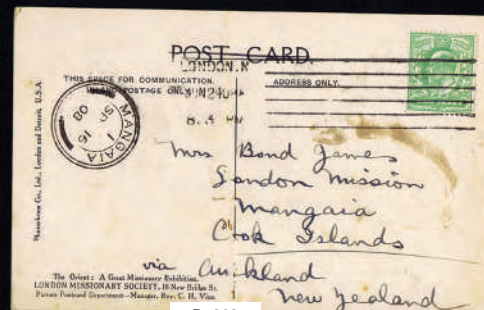 POST CARD.
LONDON.N
THIS SPACE FOR COMMUNICATION.
INLAND POSTAGE ONLY
ADDRESS ONLY.
MANGAIA
SP 16
08
Mrs Bond James
London Mission
Mangaia
Cook Islands
via Auckland
New Zealand
Photochrom Co., Ltd., London and Detroit, U.S.A.
The Orient: A Great Missionary Exhibition.
LONDON MISSIONARY SOCIETY, 16 New Bridge St.
Picture Postcard Department—Manager, Rev. C. H. Vine.